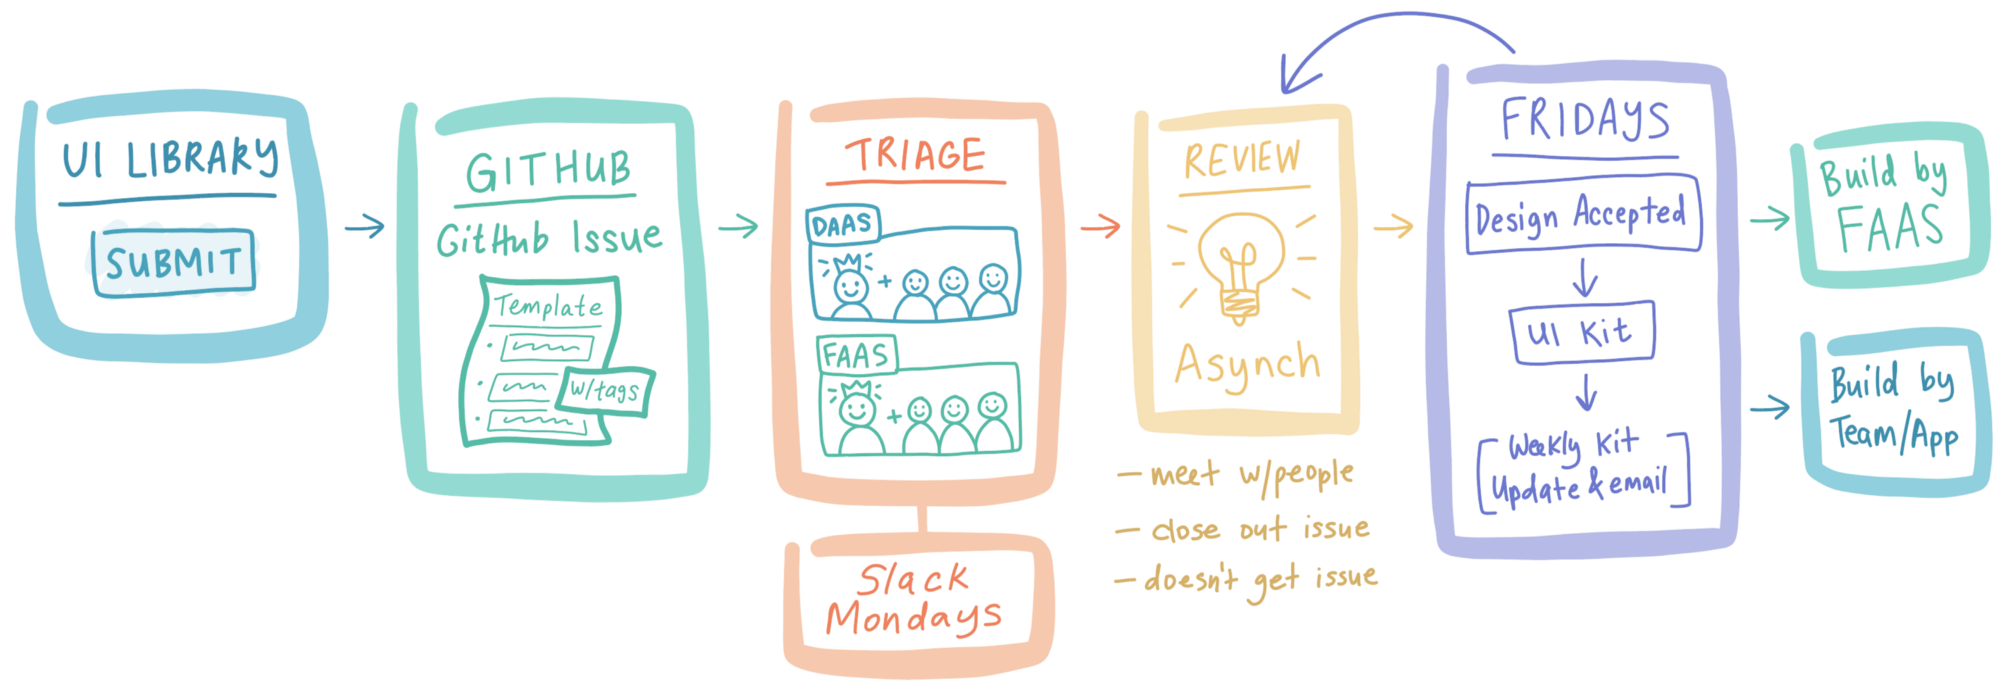 UI LIBRARY
SUBMIT
GITHUB
GitHub Issue
Template
w/tags
TRIAGE
DAAS
FAAS
Slack
Mondays
REVIEW
Asynch
– meet w/people
– close out issue
– doesn't get issue
FRIDAYS
Design Accepted
UI Kit
Weekly Kit
Update & email
Build by
FAAS
Build by
Team/App